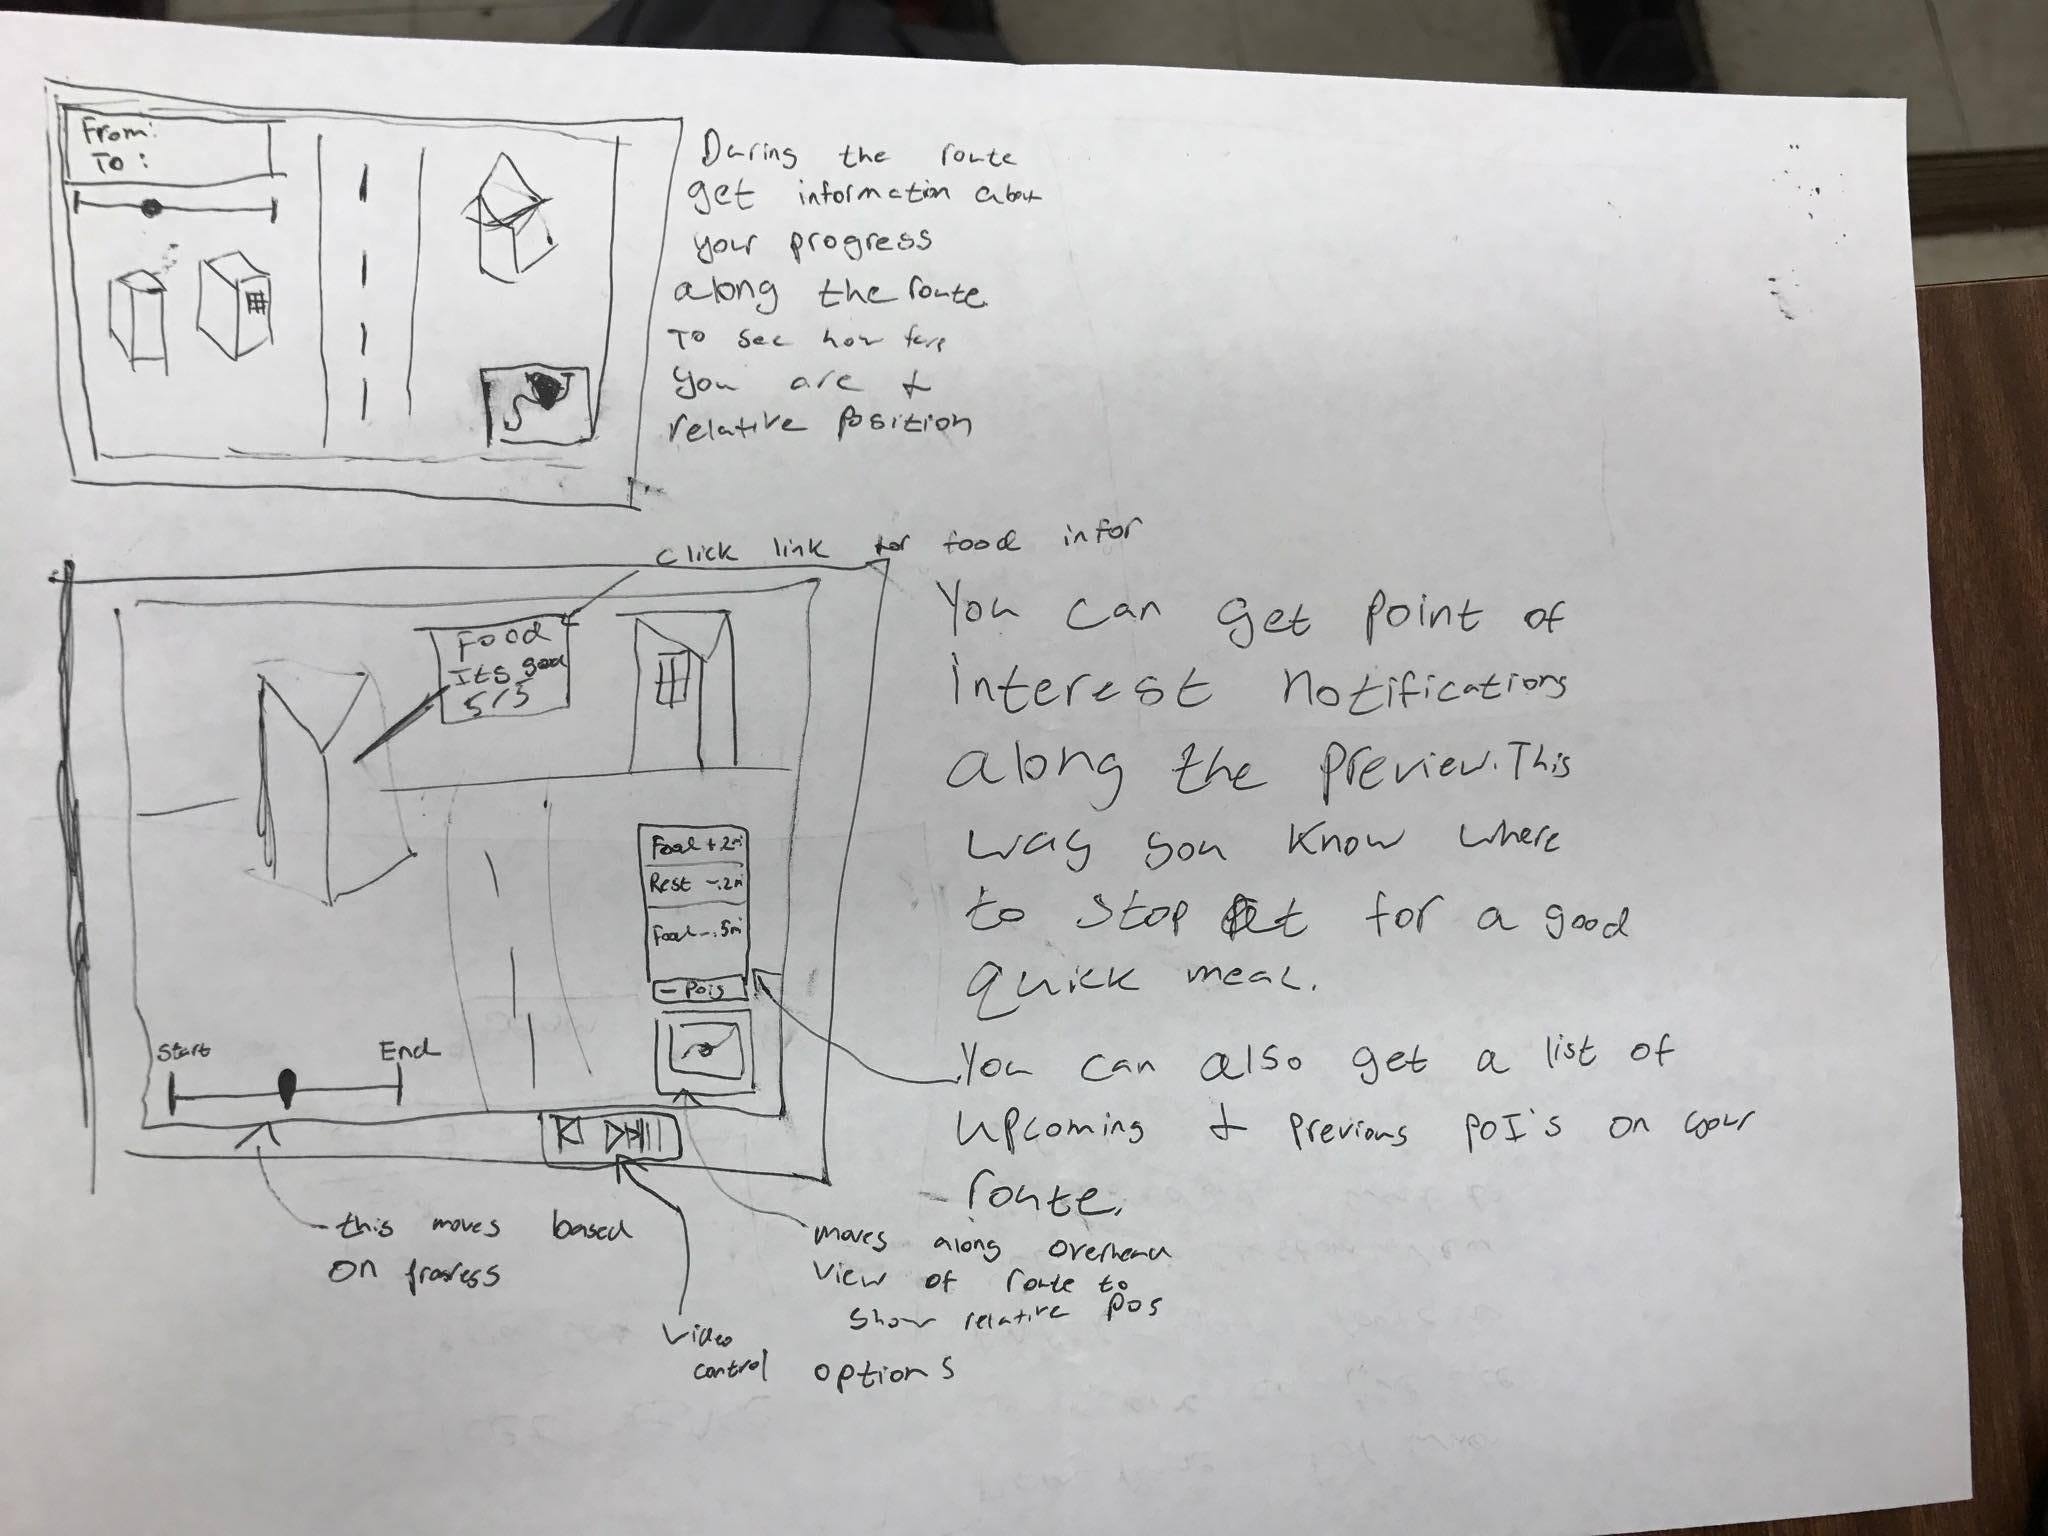 From:
To:
During the route
get information about
your progress
along the route
To see how far
you are &
relative position
click link for food infor
Food
Its good
5/5
You can get point of
interest notifications
along the preview. This
way you know where
to stop for a good
quick meal.
Food + 2mi
Rest -.2mi
Food -.5mi
- Pois
Start
End
You can also get a list of
upcoming & previous POI's on your
route.
this moves based
on progress
moves along overhead
view of route to
show relative pos
video
control options